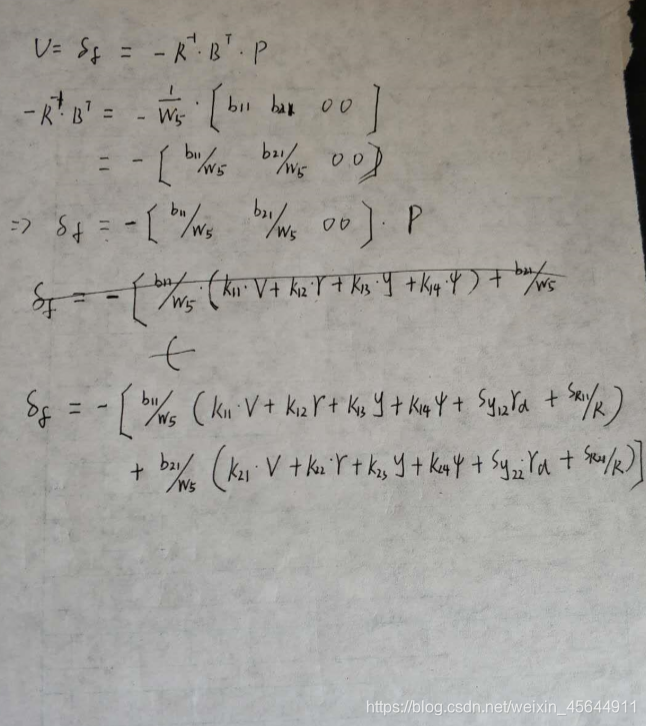 U = δf = - R⁻¹ · Bᵀ · P
- R⁻¹ · Bᵀ = - 1/W5 · [ b11 b21 0 0 ]
= - [ b11/W5 b21/W5 0 0 ]
=> δf = - [ b11/W5 b21/W5 0 0 ] · P
δf = - [ b11/W5 · ( k11·V + k12·r + k13·y + k14·ψ ) + b21/W5
(
δf = - [ b11/W5 ( k11·V + k12 r + k13 y + k14 ψ + Sy12 rd + SR11/R )
+ b21/W5 ( k21·V + k22·r + k23 y + k24 ψ + Sy22 rd + SR21/R ) ]
https://blog.csdn.net/weixin_45644911